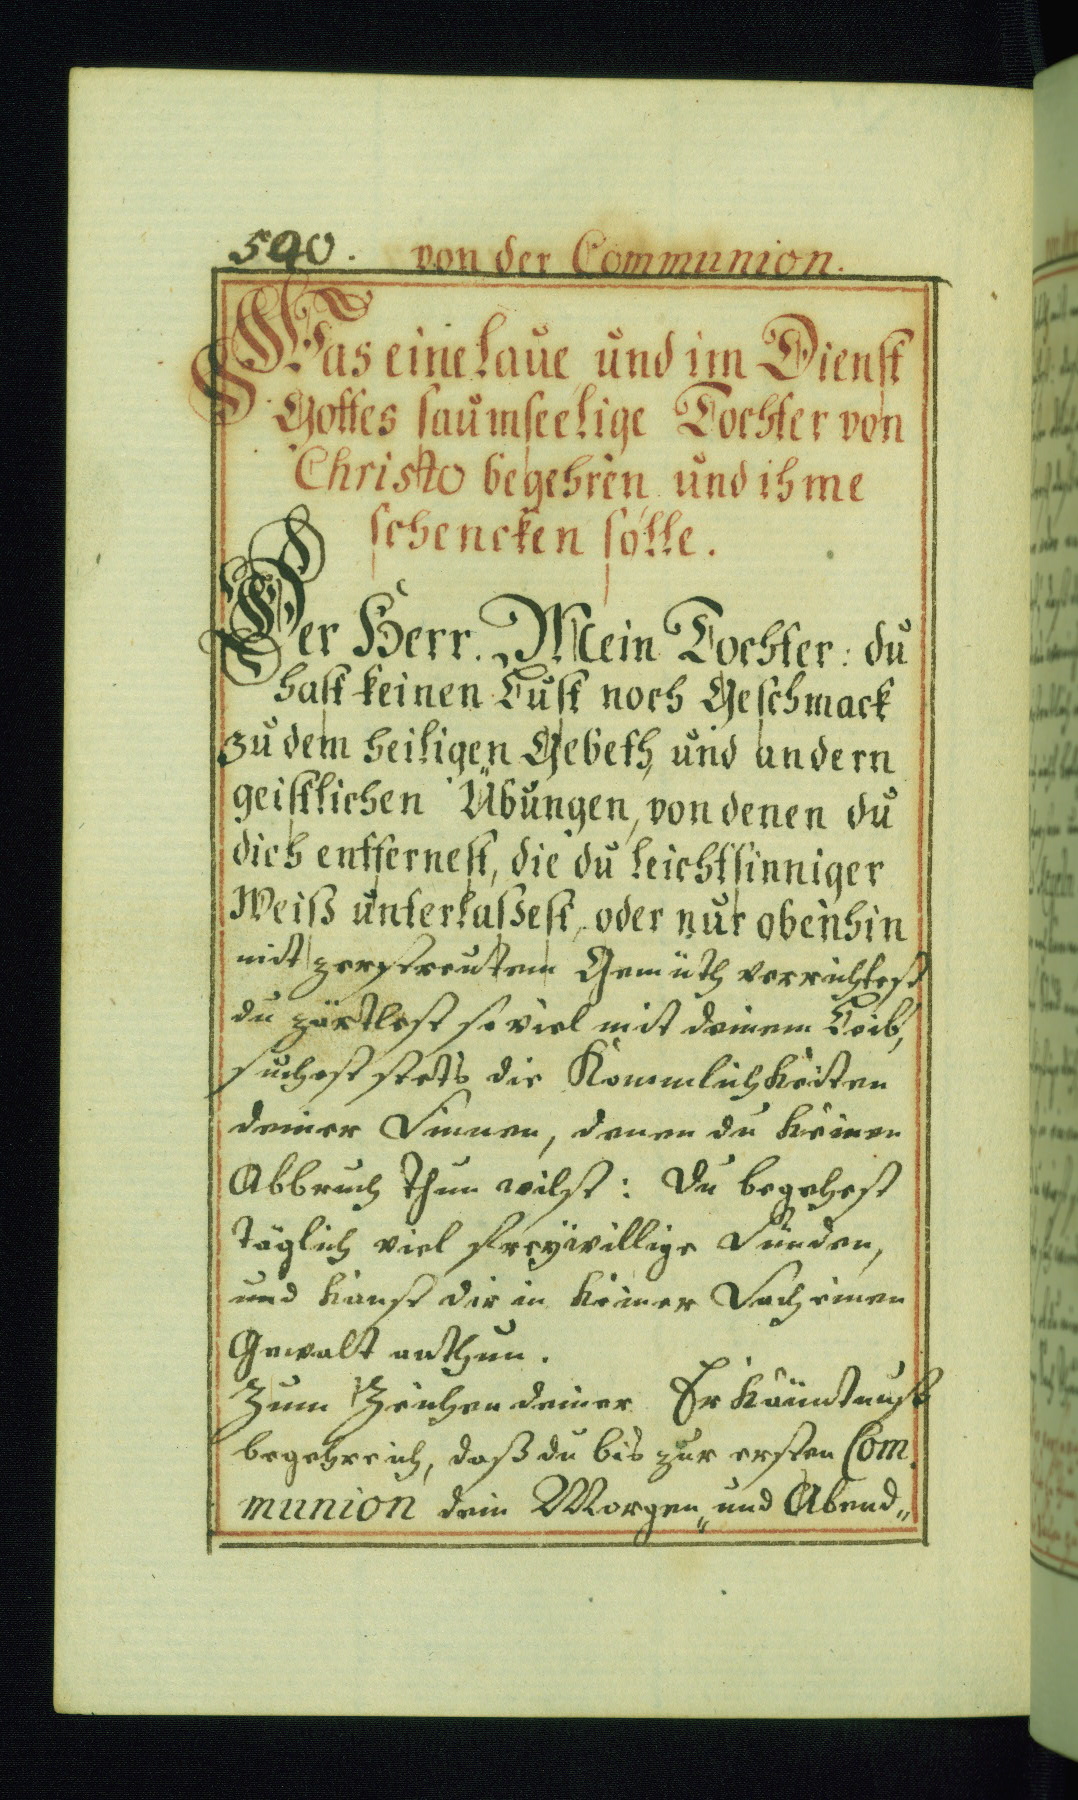 590. von der Communion.
Was eine laue und im Dienst
Gottes saumseelige Tochter von
Christo begehren und ihme
schencken solle.
Der Herr. Mein Tochter: du
hast keinen Lust noch Geschmack
zu dem heiligen Gebeth, und andern
geistlichen Übungen, von denen du
dich entfernest, die du leichtsinniger
Weiß unterlassest, oder nur obenhin
mit zerstreutem Gemüth verrichtest
du zärtlest so viel mit deinem Leib,
suchest stets die Kommlichkeiten
deiner Sinnen, denen du keinen
Abbruch thun wilst: Du begehest
täglich viel freywillige Sünden,
und kanst dir in keiner Sach einen
Gewalt anthun.
Zum Zeichen deiner Erkäntnuß
begehre ich, daß du bis zur ersten Com
munion dein Morgen„ und Abend„